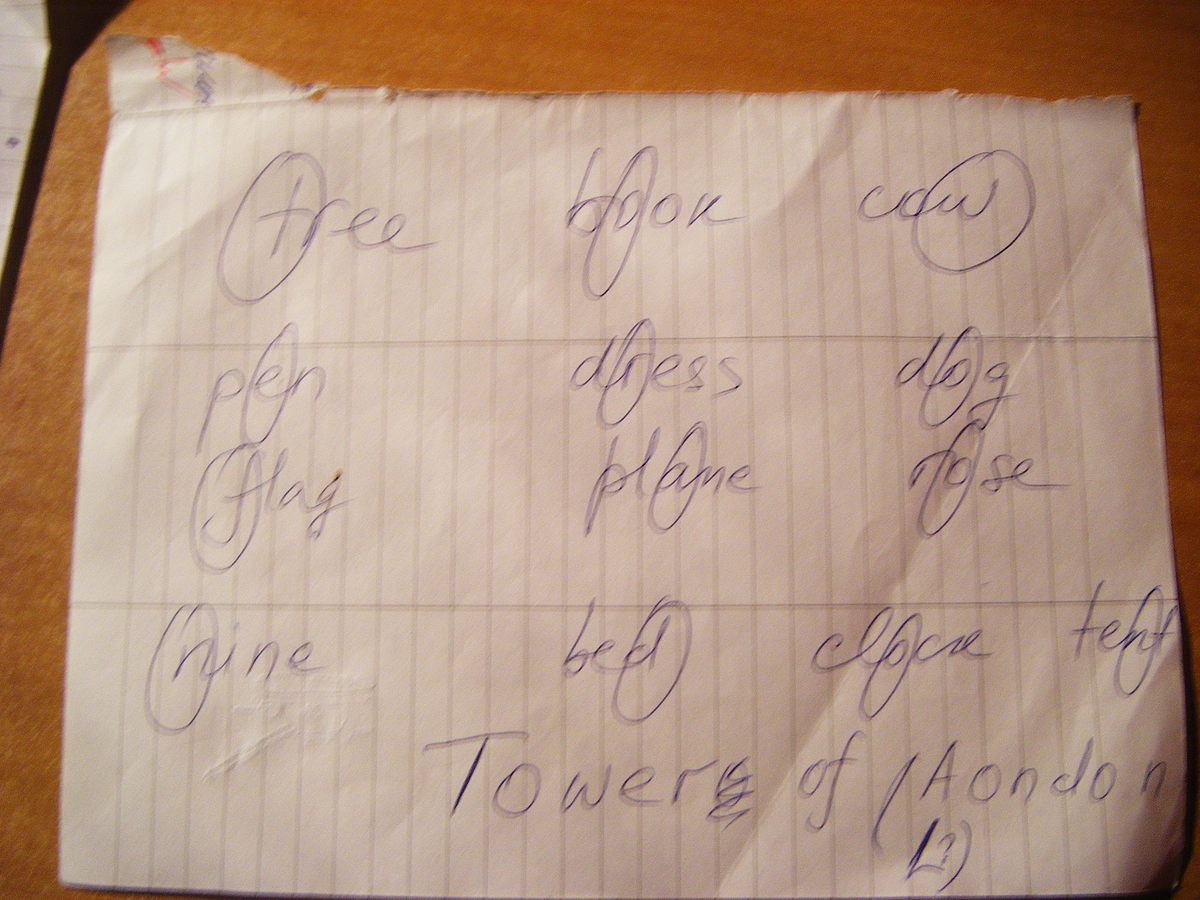 tree book cow
pen dress dog
flag plane rose
nine bed clock tent
Tower of (Aondon
L?)